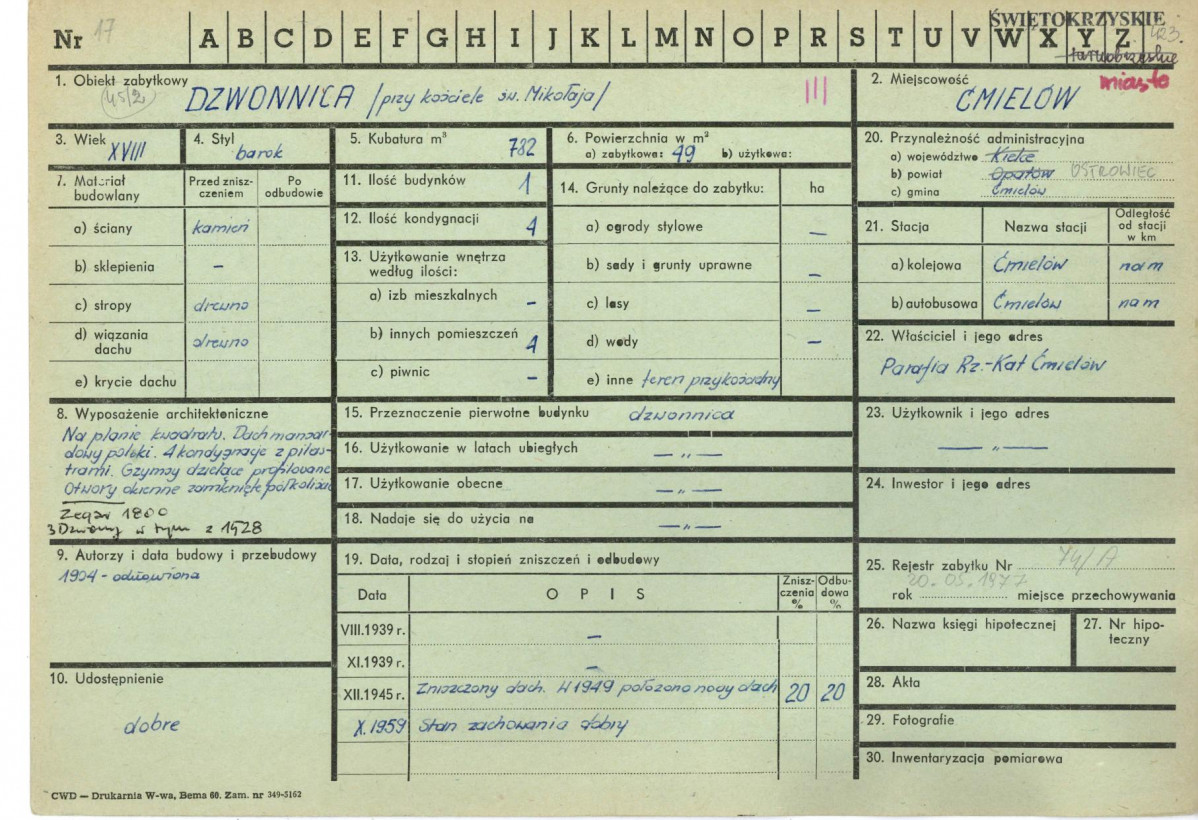 Nr 17 A B C D E F G H I J K L M N O P R S T U V W X Y Z
ŚWIĘTOKRZYSKIE
423.
tarnobrzeskie
1. Obiekt zabytkowy
45/2
DZWONNICA /przy kościele św. Mikołaja/
III
2. Miejscowość
miasto
ĆMIELÓW
3. Wiek
XVIII
4. Styl
barok
5. Kubatura m³
782
6. Powierzchnia w m²
a) zabytkowa: 49 b) użytkowa:
7. Materiał budowlany
Przed zniszczeniem
Po odbudowie
a) ściany kamień
b) sklepienia –
c) stropy drewno
d) wiązania dachu drewno
e) krycie dachu
8. Wyposażenie architektoniczne
Na planie kwadratu. Dach mansar-
dowy polski. 4 kondygnacje z pilas-
trami. Gzymsy dzielące profilowane
Otwory okienne zamknięte półkoliście
Zegar 1800
3 Dzwony w tym z 1528
9. Autorzy i data budowy i przebudowy
1904 - odnowiona
10. Udostępnienie
dobre
11. Ilość budynków 1
12. Ilość kondygnacji 4
13. Użytkowanie wnętrza
według ilości:
a) izb mieszkalnych –
b) innych pomieszczeń 4
c) piwnic –
14. Grunty należące do zabytku: ha
a) ogrody stylowe –
b) sady i grunty uprawne –
c) lasy –
d) wody –
e) inne teren przykościelny
15. Przeznaczenie pierwotne budynku dzwonnica
16. Użytkowanie w latach ubiegłych — „ —
17. Użytkowanie obecne — „ —
18. Nadaje się do użycia na — „ —
19. Data, rodzaj i stopień zniszczeń i odbudowy
Data O P I S Zniszczenia % Odbudowa %
VIII.1939 r. –
XI.1939 r. –
XII.1945 r. Zniszczony dach. W 1949 położono nowy dach 20 20
X.1959 Stan zachowania dobry
20. Przynależność administracyjna
a) województwo Kielce
b) powiat Opatów OSTROWIEC
c) gmina Ćmielów
21. Stacja Nazwa stacji Odległość od stacji w km
a) kolejowa Ćmielów na m
b) autobusowa Ćmielów na m
22. Właściciel i jego adres
Parafia Rz.-Kat Ćmielów
23. Użytkownik i jego adres
— „ —
24. Inwestor i jego adres
25. Rejestr zabytku Nr 74/A
20. 05. 1977
rok miejsce przechowywania
26. Nazwa księgi hipotecznej
27. Nr hipo-
teczny
28. Akta
29. Fotografie
30. Inwentaryzacja pomiarowa
CWD — Drukarnia W-wa, Bema 60. Zam. nr 349-5162